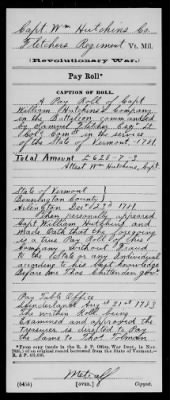 Capt Wm Hutchins Co.
Fletchers Regiment Vt. Mil.
(Revolutionary War.)
Pay Roll*
CAPTION OF ROLL.
A Pay Roll of Capt
William Hutchins's Company
in the Battalion commanded
by Samuel Fletcher Esqr. Lt.
Colo. Comt. in the service
of the State of Vermont, 1781.
Total Amount £628-7-3
Attest Wm Hutchins, Capt.
State of Vermont
Bennington County
Arlington Decr. 27th 1781.
Then personally appeared
Capt William Hutchins and
Made Oath that the foregoing
is a true Pay Roll of his
Company Without Fraud
to the State or any Individual
according to his best knowledge
Before me Thos Chittenden Govr.
Pay Table Office
Sunderland Augst 31st 1783
The within Roll being
Examined and approved the
Treasurer is directed to Pay
the same to Thos Johnson
*True copy (made in the R. & P. Office, War Dept., in
of an original record borrowed from the State of Vermont.—
R. & P.
Metcalf
(545b) [OVER.] Copyist.